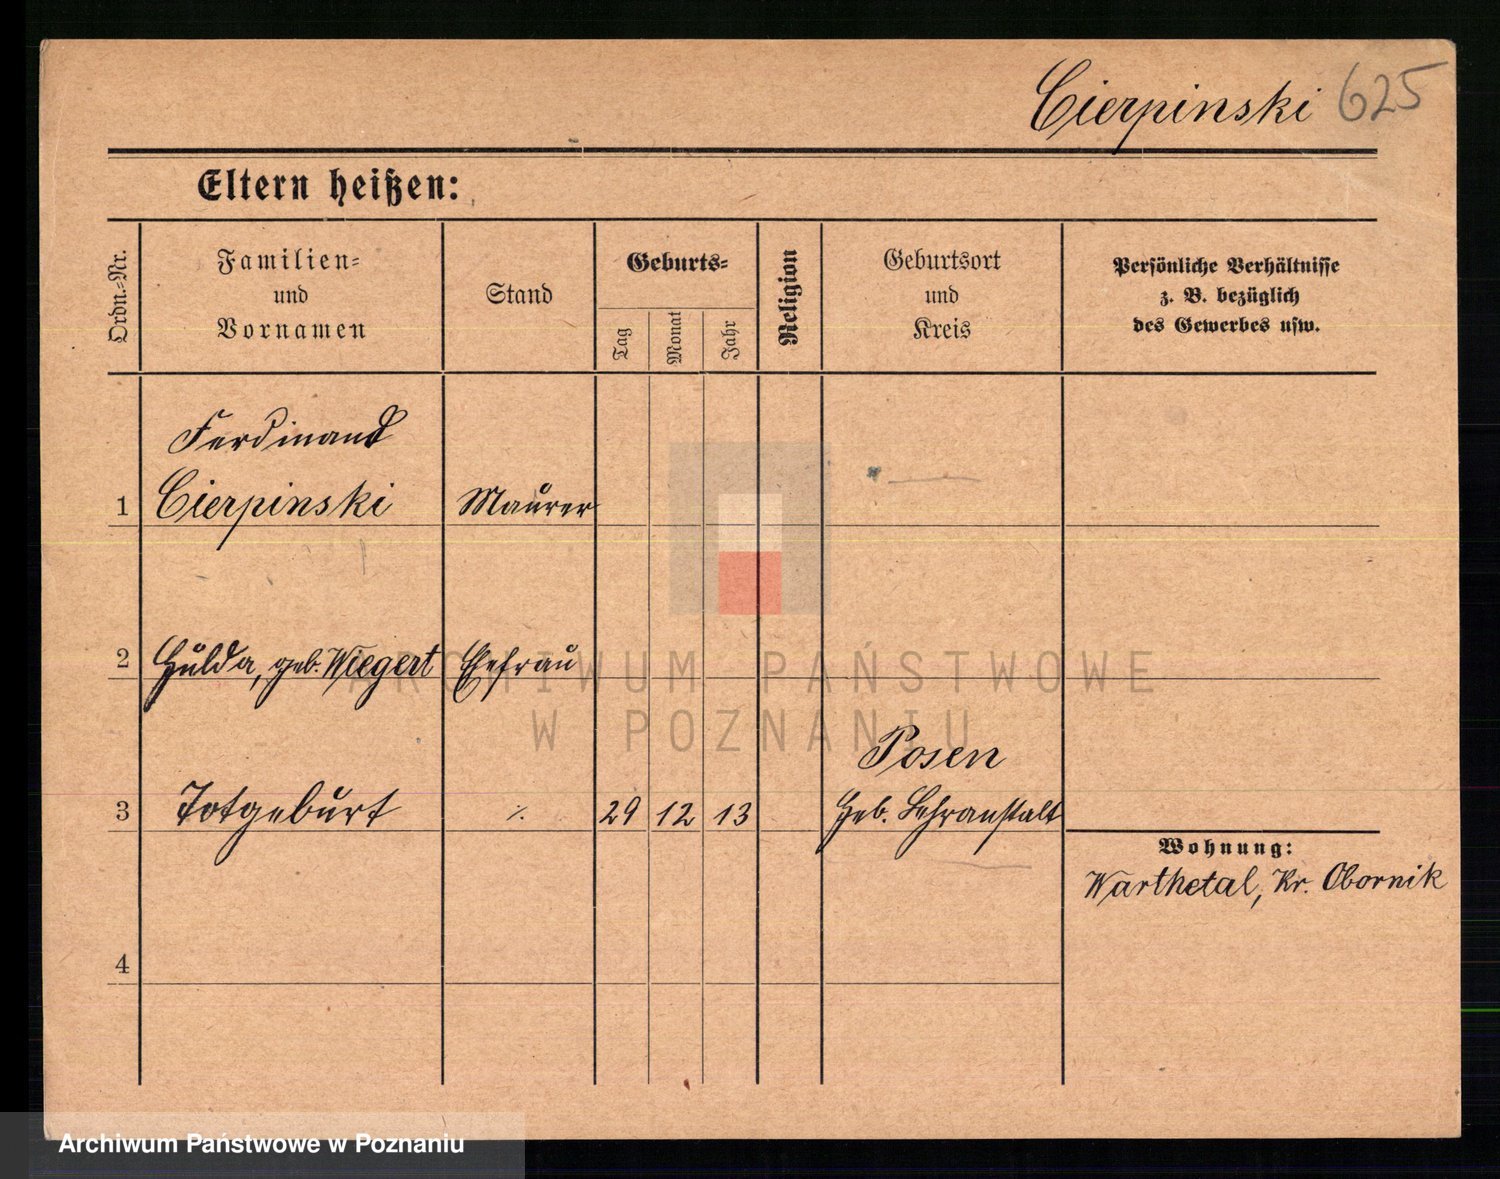 Cierpinski 625
Eltern heißen:
Ordn.-Nr.
Familien-
und
Vornamen
Stand
Geburts-
Tag
Monat
Jahr
Religion
Geburtsort
und
Kreis
Persönliche Verhältnisse
z. B. bezüglich
des Gewerbes usw.
Ferdinand
1 Cierpinski Maurer
2 Hulda, geb. Wiegert Ehefrau
ARCHIWUM PAŃSTWOWE
W POZNANIU
Posen
3 Totgeburt ⁒ 29 12 13 Heb. Lehranstalt
Wohnung:
Warthetal, Kr. Obornik
4
Archiwum Państwowe w Poznaniu